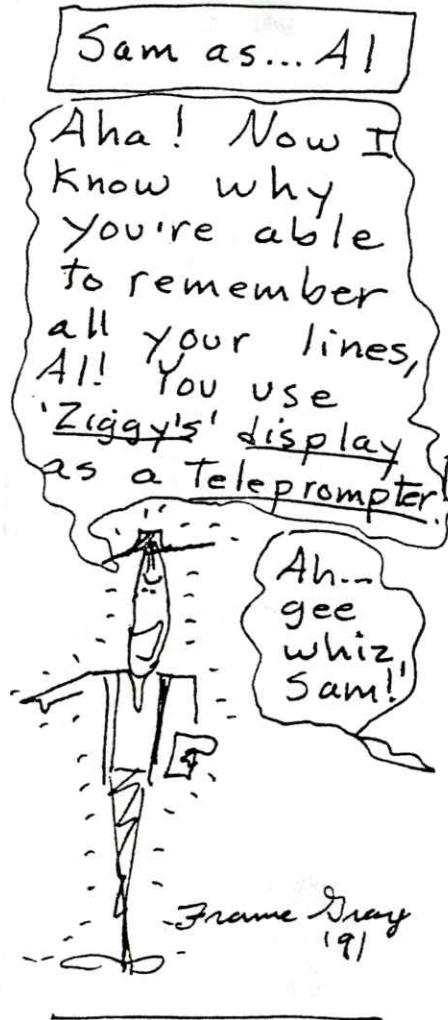 Sam as... Al
Aha! Now I
know why
you're able
to remember
all your lines,
Al! You use
'Ziggy's' display
as a Teleprompter!
Ah--
gee
whiz,
Sam!'
Frame Gray
'91